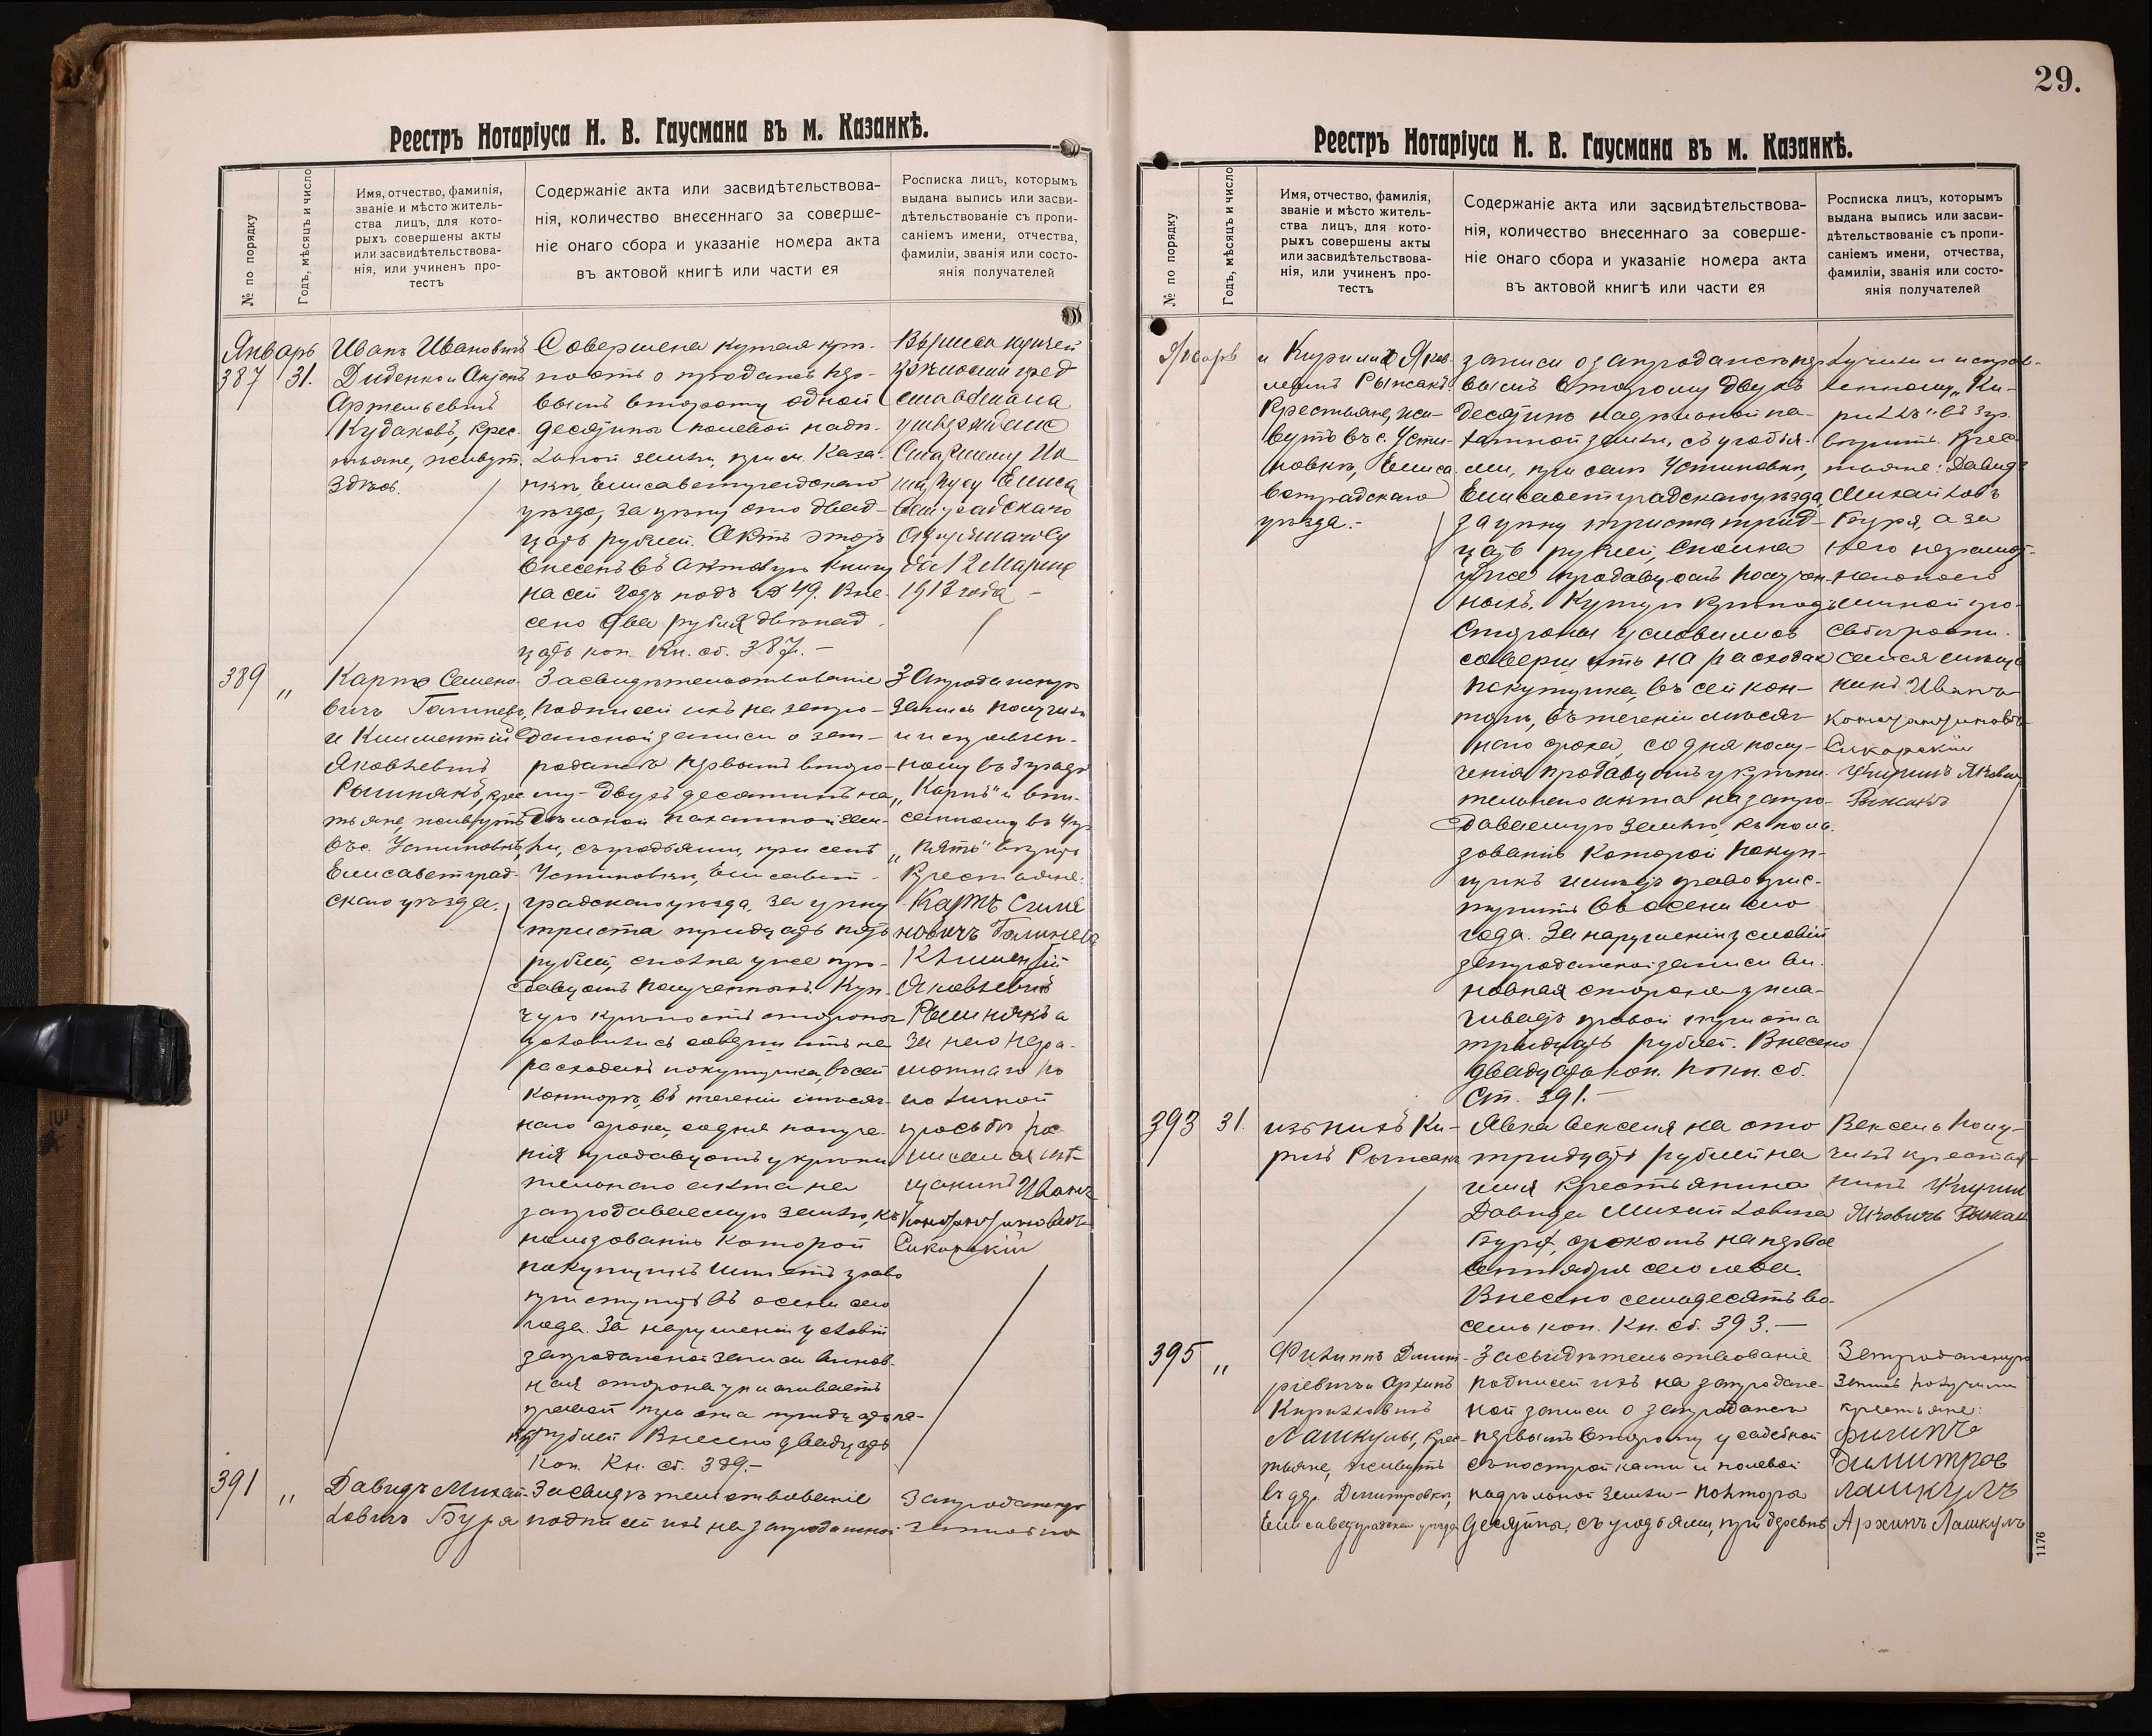 Реестръ Нотаріуса Н. В. Гаусмана въ м. Казанкѣ.
№ по порядку
Годъ, мѣсяцъ и число
Имя, отчество, фамилія,
званіе и мѣсто житель-
ства лицъ, для кото-
рыхъ совершены акты
или засвидѣтельствова-
нія, или учиненъ про-
тестъ
Содержаніе акта или засвидѣтельствова-
нія, количество внесеннаго за соверше-
ніе онаго сбора и указаніе номера акта
въ актовой книгѣ или части ея
Росписка лицъ, которымъ
выдана выпись или засви-
дѣтельствованіе съ пропи-
саніемъ имени, отчества,
фамиліи, званія или состо-
янія получателей
Январь
387 31.
Иванъ Ивановичъ
Диденко и Антонъ
Артемьевичъ
Кудаковъ, крес-
тьяне, живут.
здѣсь.
Совершена купчая крѣ-
пость о продажѣ пер-
вымъ второму одной
десятины полевой надѣ-
льной земли, при м. Каза-
нкѣ, Елисаветградскаго
уѣзда, за цѣну сто двад-
цать рублей. Актъ этотъ
внесенъ въ актовую книгу
на сей годъ подъ № 49. Вне-
сено два рубля двѣнад-
цать коп. Кн. сб. 387.-
Выписи купчей
крѣпости пред
ставлена на
утвержденіе
Старшему Но
таріусу Елиса
ветградскаго
Окружнаго Су
да 12 Марта
1912 года -
389 „
Карпъ Семено-
вичъ Галинева,
и Климентій
Яковлевичъ
крес-
тьяне, живутъ
въ с. Устиновкѣ,
Елисаветград-
скаго уѣзда.
Засвидѣтельствованіе
подписей ихъ на запро-
дажной записи о зап-
родажѣ первымъ второ-
му - двухъ десятинъ на-
дѣльной пахатной зем-
ли, съ угодьями, при селѣ
Устиновкѣ, Елисавет-
градскаго уѣзда, за цѣну
триста тридцать пять
рублей, сполна уже про-
давцомъ полученныхъ. Куп-
чую крѣпость стороны
условились совершить на
расходахъ покупщика, въ сей
конторѣ, въ теченіи мѣсяч-
наго срока, со дня получе-
нія продавцомъ укрѣпи-
тельнаго акта на
запродаваемую землю, къ
пользованію которой
покупщикъ имѣетъ право
приступить въ осени сего
года. За нарушеніи условій
запродажной записи винов-
ная сторона уплачиваетъ
правой триста тридцать пя-
рублей Внесено двадцать
Коп. Кн. сб. 389.-
Запродажную
запись получилъ
и исправлен-
ному въ 3 градѣ
„Карпъ" и впи-
санному въ 4 гр
„пять" вѣрить
Крестьяне:
Карпъ Симе
новичъ Галинева
Климентій
Яковлевичъ
а
за него негра-
мотнаго по
его личной
просьбѣ рос
писался мѣ-
щанинъ Иванъ
Константиновичъ
Сикорскій
391 „
Давидъ Михай-
ловичъ Буря
Засвидѣтельствованіе
подписей ихъ на запродажной
Запродажную
запись по
29.
Реестръ Нотаріуса Н. В. Гаусмана въ м. Казанкѣ.
№ по порядку
Годъ, мѣсяцъ и число
Имя, отчество, фамилія,
званіе и мѣсто житель-
ства лицъ, для кото-
рыхъ совершены акты
или засвидѣтельствова-
нія, или учиненъ про-
тестъ
Содержаніе акта или засвидѣтельствова-
нія, количество внесеннаго за соверше-
ніе онаго сбора и указаніе номера акта
въ актовой книгѣ или части ея
Росписка лицъ, которымъ
выдана выпись или засви-
дѣтельствованіе съ пропи-
саніемъ имени, отчества,
фамиліи, званія или состо-
янія получателей
Январь
и Кирилъ Яков-
левичъ Рыжакъ
Крестьяне, жи-
вутъ въ с. Усти-
новкѣ, Елиса-
ветградскаго
уѣзда.-
записи о запродажѣ пер-
вымъ второму двухъ
десятинъ надѣльной па-
хатной земли, съ угодья-
ми, при селѣ Устиновкѣ,
Елисаветградскаго уѣзда,
за цѣну триста трид-
цать рублей, сполна
уже продавцомъ получен-
ныхъ. Купчую крѣпость
стороны условились
совершить на расходахъ
покупщика, въ сей кон-
торѣ, въ теченіи мѣсяч-
наго срока, со дня полу-
ченія продавцомъ укрѣпи-
тельнаго акта на запро-
даваемую землю, къ поль-
зованію которой покуп-
щикъ имѣетъ право прис-
тупить въ осени сего
года. За нарушеніи условій
запродажной записи ви-
новная сторона упла-
чиваетъ правой триста
тридцать рублей. Внесено
двадцать коп. Кн. сб.
Ст. 391.-
лучили и исправ-
ленному „Ки-
рилъ" въ 3 гр.
вѣрить. Крес-
тьяне: Давидъ
Михайловъ
Буря, а за
него неграмот-
наго по его
личной про-
сьбѣ роспи-
сался мѣща
нинъ Иванъ
Константиновичъ
Сикорскій
Кирилъ Яковли
Рыжакъ
393 31.
изъ нихъ Ки-
рилъ Рыжакъ
Явка векселя на сто
тридцать рублей на
имя крестьянина
Давида Михайловича
Буря, срокомъ на первое
сентября сего года.
Внесено семьдесятъ во-
семь коп. Кн. сб. 393.-
Вексель полу-
чилъ крестья-
нинъ Кирил
Яковичъ Рыжак
395 „
Филиппъ Димит-
ріевичъ и Архипъ
Кириловичъ
Лашкулы, крес-
тьяне, живутъ
въ дер. Димитровкѣ,
Елисаветградскаго уѣзда
Засвидѣтельствованіе
подписей ихъ на запродаж-
ной записи о запродажѣ
первымъ второму усадебной
съ постройками и полевой
надѣльной земли - полтора
десятины, съ угодьями, при деревнѣ
Запродажную
запись получили
крестьяне:
Филипъ
Димитров
Лашкулъ
Архипъ Лашкулъ
1176